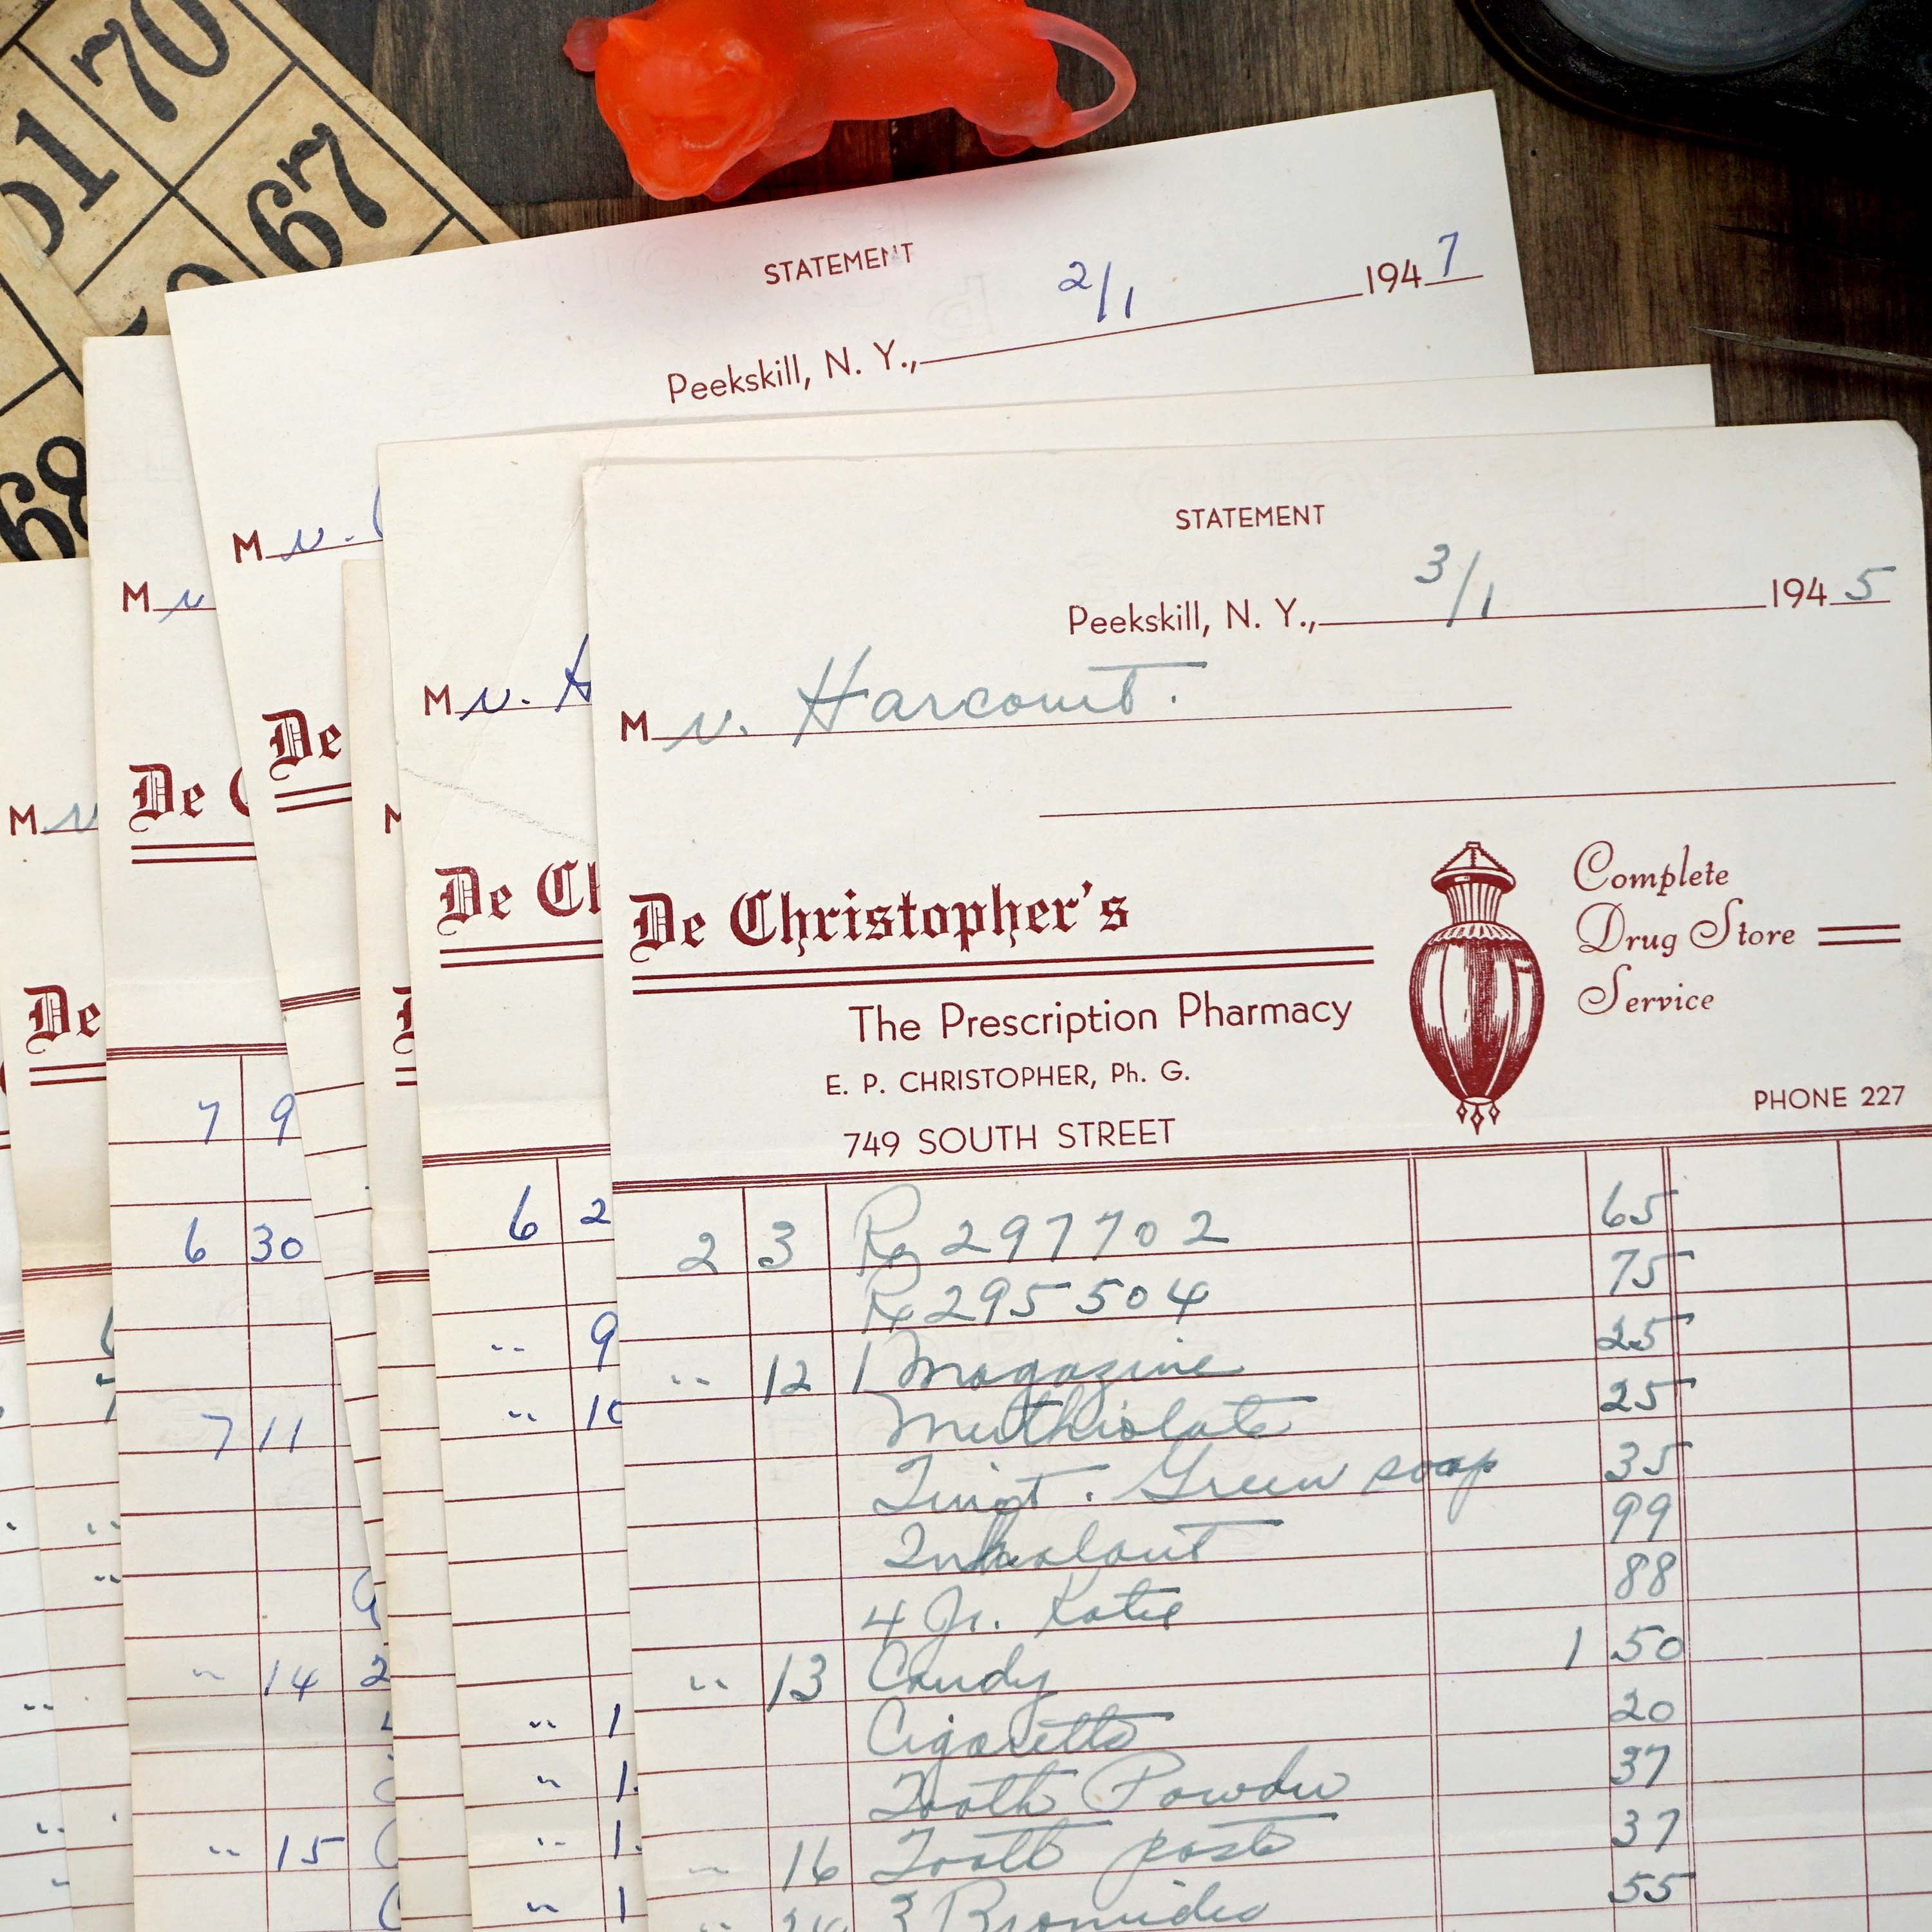 70
01
67
68
STATEMENT
2/1 1947
Peekskill, N. Y.,
M r.
M r
STATEMENT
3/1 1945
Peekskill, N. Y.,
M r. H
M r. Harcourt.
De
M
De C
M r
De Ch
De Christopher's
Complete
Drug Store
Service
The Prescription Pharmacy
E. P. CHRISTOPHER, Ph. G.
PHONE 227
749 SOUTH STREET
De
7 9
6 30
7 11
" 14 2
" 15
6 2
" 9
" 10
" 1
" 1
" 1
" 1
2 3 Rx 297702 65
Rx 295504 75
" 12 1 Magazine 25
Merthiolate 25
Tinct. Green soap 35
Inhalant 99
4 Jr. Kotex 88
" 13 Candy 1 50
Cigarette 20
Tooth Powder 37
" 16 Tooth paste 37
" 3 Bromides 55